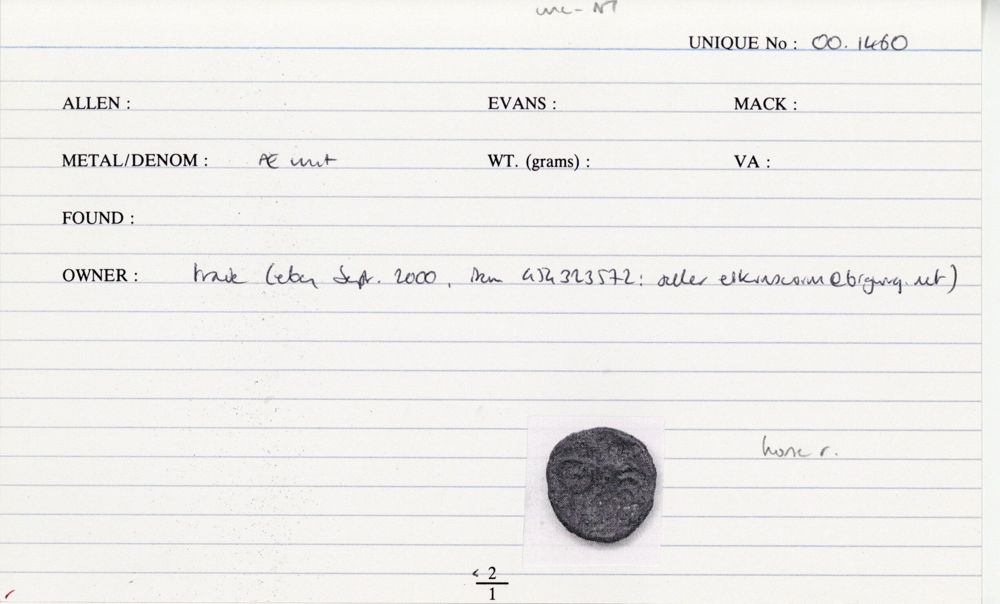 unc - NT
UNIQUE No : 00.1460
ALLEN : EVANS : MACK :
METAL/DENOM : Æ unit WT. (grams) : VA :
FOUND :
OWNER : trade (ebay Sept. 2000, item 434323572: seller
horse r.
< 2
1